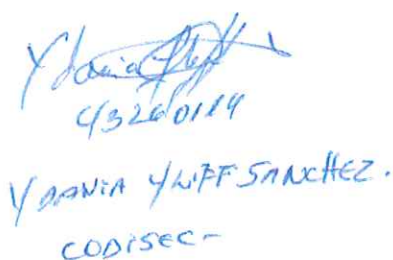 43260114
YDANIA YLIFF SANCHEZ.
CODISEC-